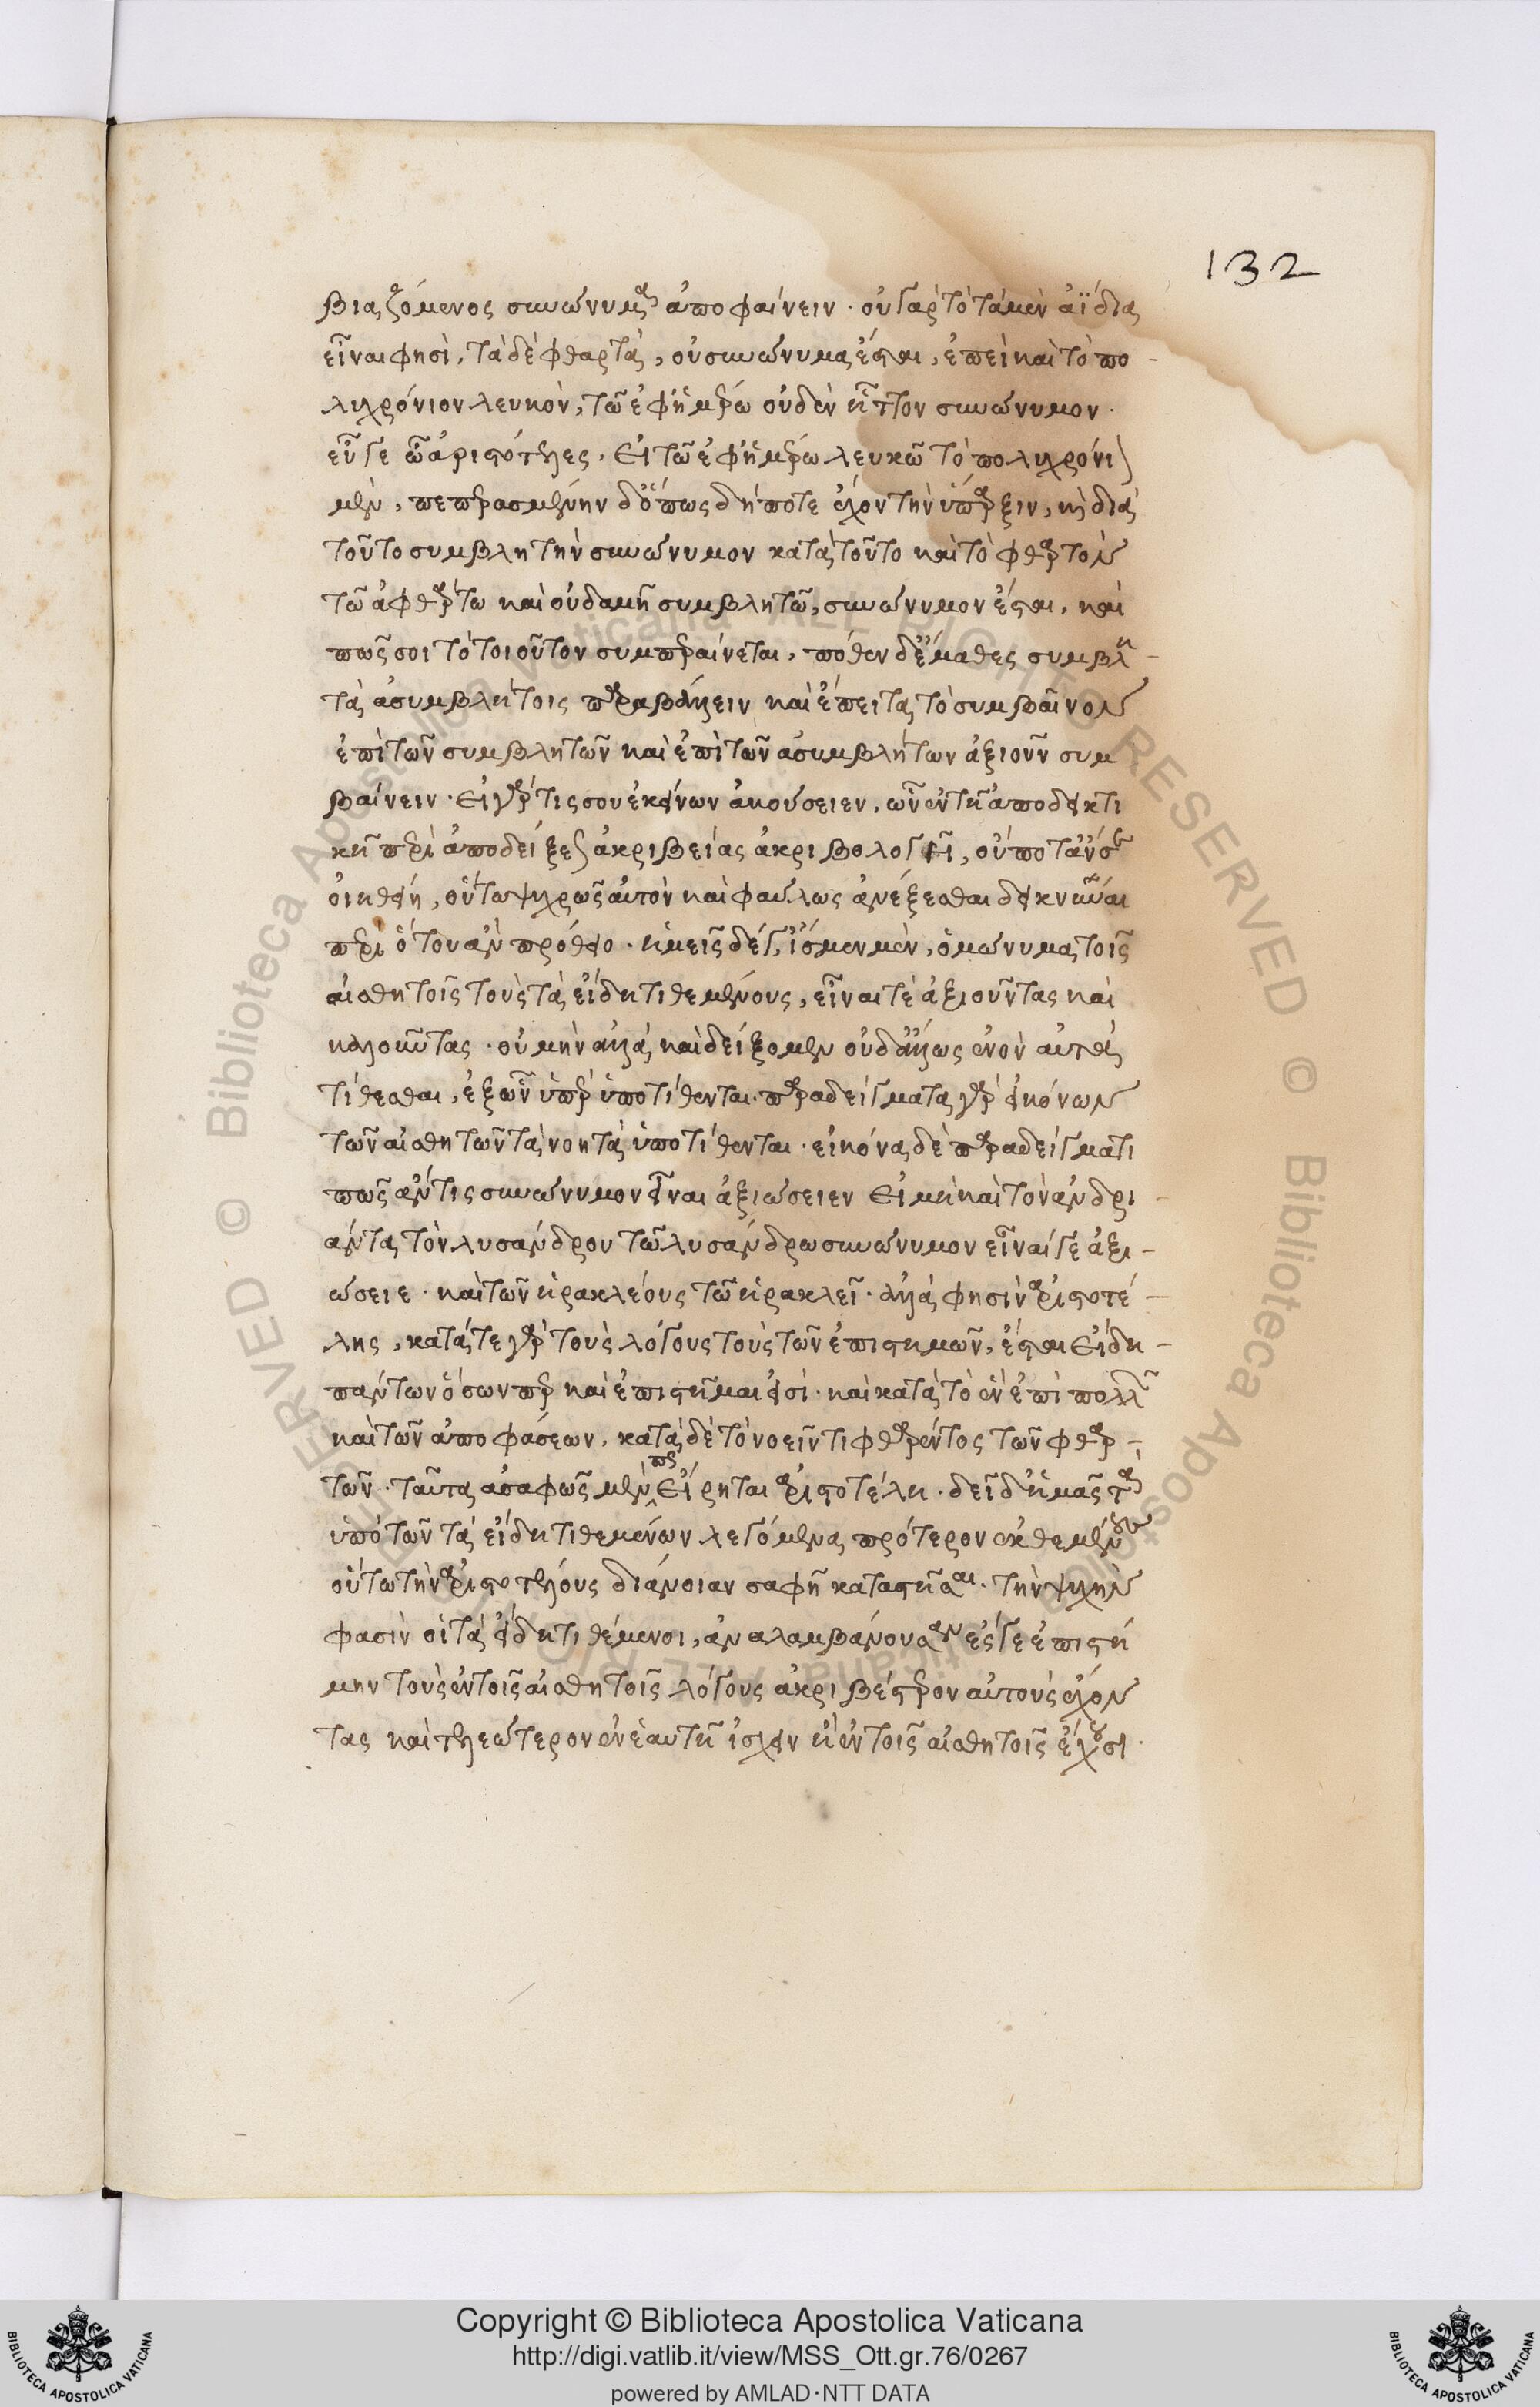 132
βιαζόμενος συνώνυμα ἀποφαίνειν · οὐ γὰρ τὸ τὰ μὲν ἀΐδια
εἶναι φησὶ, τὰ δὲ φθαρτὰ, οὐ συνώνυμα ἔσται, ἐπεὶ καὶ τὸ πο-
λυχρόνιον λευκὸν, τῶ ἐφημέρω οὐδὲν ἧττον συνώνυμον ·
εὖγε ὦ ἀριστότελες · εἰ τῶ ἐφημέρω λευκῶ τὸ πολυχρόνιον
μὲν, πεπερασμένην δ' ὅπως δήποτε ἔχον τὴν ὕπαρξιν, καὶ διὰ
τοῦτο συμβλητὴν συνώνυμον κατὰ τοῦτο καὶ τὸ φθαρτὸν
τῶ ἀφθάρτω καὶ οὐδαμῆ συμβλητῶ, συνώνυμον ἔσται, καὶ
πῶς σοι τὸ τοιοῦτον συμπεραίνεται, πόθεν δὲ ἔμαθες συμβλη-
τὰ ἀσυμβλήτοις παραβάλλειν καὶ ἔπειτα τὸ συμβαῖνον
ἐπὶ τῶν συμβλητῶν καὶ ἐπὶ τῶν ἀσυμβλήτων ἀξιοῦν συμ
βαίνειν · εἰ γάρ τις σου ἐκείνων ἀκούσειεν, ὧν ἐν τῆ ἀποδεικτι
κῆ περὶ ἀποδείξεως ἀκριβείας ἀκριβολογῆ, οὔποτ' ἄν σε
οἰηθείη, οὕτω ψυχρῶς αὐτὸν καὶ φαύλως ἀνέξεσθαι δεικνύναι
περὶ ὅτου ἂν πρόθοιο · ἡμεῖς δέ γ' ἴσμεν μὲν, ὁμώνυμα τοῖς
αἰσθητοῖς τοὺς τὰ εἴδη τιθεμένους, εἶναι τὲ ἀξιοῦντας καὶ
καλοῦντας · οὐ μὴν ἀλλὰ καὶ δείξομεν οὐδ' ἄλλως ἐνὸν αὐτὰ
τίθεσθαι, ἐξ ὧν ὑπὲρ ὑποτίθενται · παραδείγματα γὰρ εἰκόνων
τῶν αἰσθητῶν τὰ νοητὰ ὑποτίθενται · εἰκόνα δὲ παραδείγματι
πῶς ἄν τις συνώνυμον εἶναι ἀξιώσειεν εἰ μὴ καὶ τὸν ἀνδρι-
άντα τὸν λυσάνδρου τῶ λυσάνδρω συνώνυμον εἶναί γε ἀξι-
ώσειε · καὶ τῶν ἡρακλέους τῶ ἡρακλεῖ · ἀλλὰ φησὶν ἀριστοτέ-
λης, κατά τε γὰρ τοὺς λόγους τοὺς τῶν ἐπιστημῶν, ἔσται εἴδη-
πάντων ὅσων περ καὶ ἐπιστῆμαι εἰσὶ · καὶ κατὰ τὸ ἓν ἐπὶ πολλῶν
καὶ τῶν ἀποφάσεων, κατὰ δὲ τὸ νοεῖν τι φθαρέντος τῶν φθαρ-
τῶν · ταῦτα ἀσαφῶς μέν πως εἴρηται ἀριστοτέλη · δεῖ δ' ἡμᾶς τὰ
ὑπὸ τῶν τὰ εἴδη τιθεμένων λεγόμενα πρότερον ἐκθεμένους
οὕτω τὴν ἀριστοτέλους διάνοιαν σαφῆ καταστῆσαι · τὴν ψυχὴν
φασὶν οἱ τὰ εἴδη τιθέμενοι, ἀναλαμβάνουσαν ἔς γε ἐπιστή
μην τοὺς ἐν τοῖς αἰσθητοῖς λόγους ἀκριβέστερον αὐτοὺς ἔχον
τας καὶ τελεώτερον ἐν ἑαυτῆ ἴσχειν ἢ ἐν τοῖς αἰσθητοῖς ἔχουσι ·
Copyright © Biblioteca Apostolica Vaticana
http://digi.vatlib.it/view/MSS_Ott.gr.76/0267
powered by AMLAD·NTT DATA